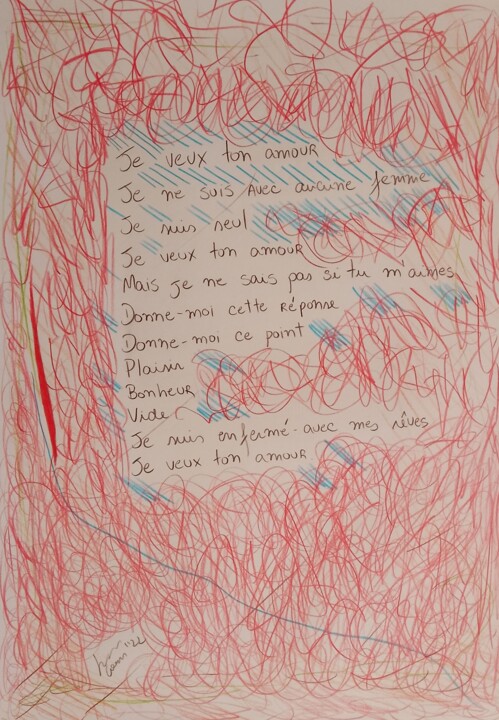 Je veux ton amour
Je ne suis avec aucune femme
Je suis seul
Je veux ton amour
Mais je ne sais pas si tu m'aimes
Donne-moi cette réponse
Donne-moi ce point
Plaisir
Bonheur
Vide
Je suis enfermé avec mes rêves
Je veux ton amour